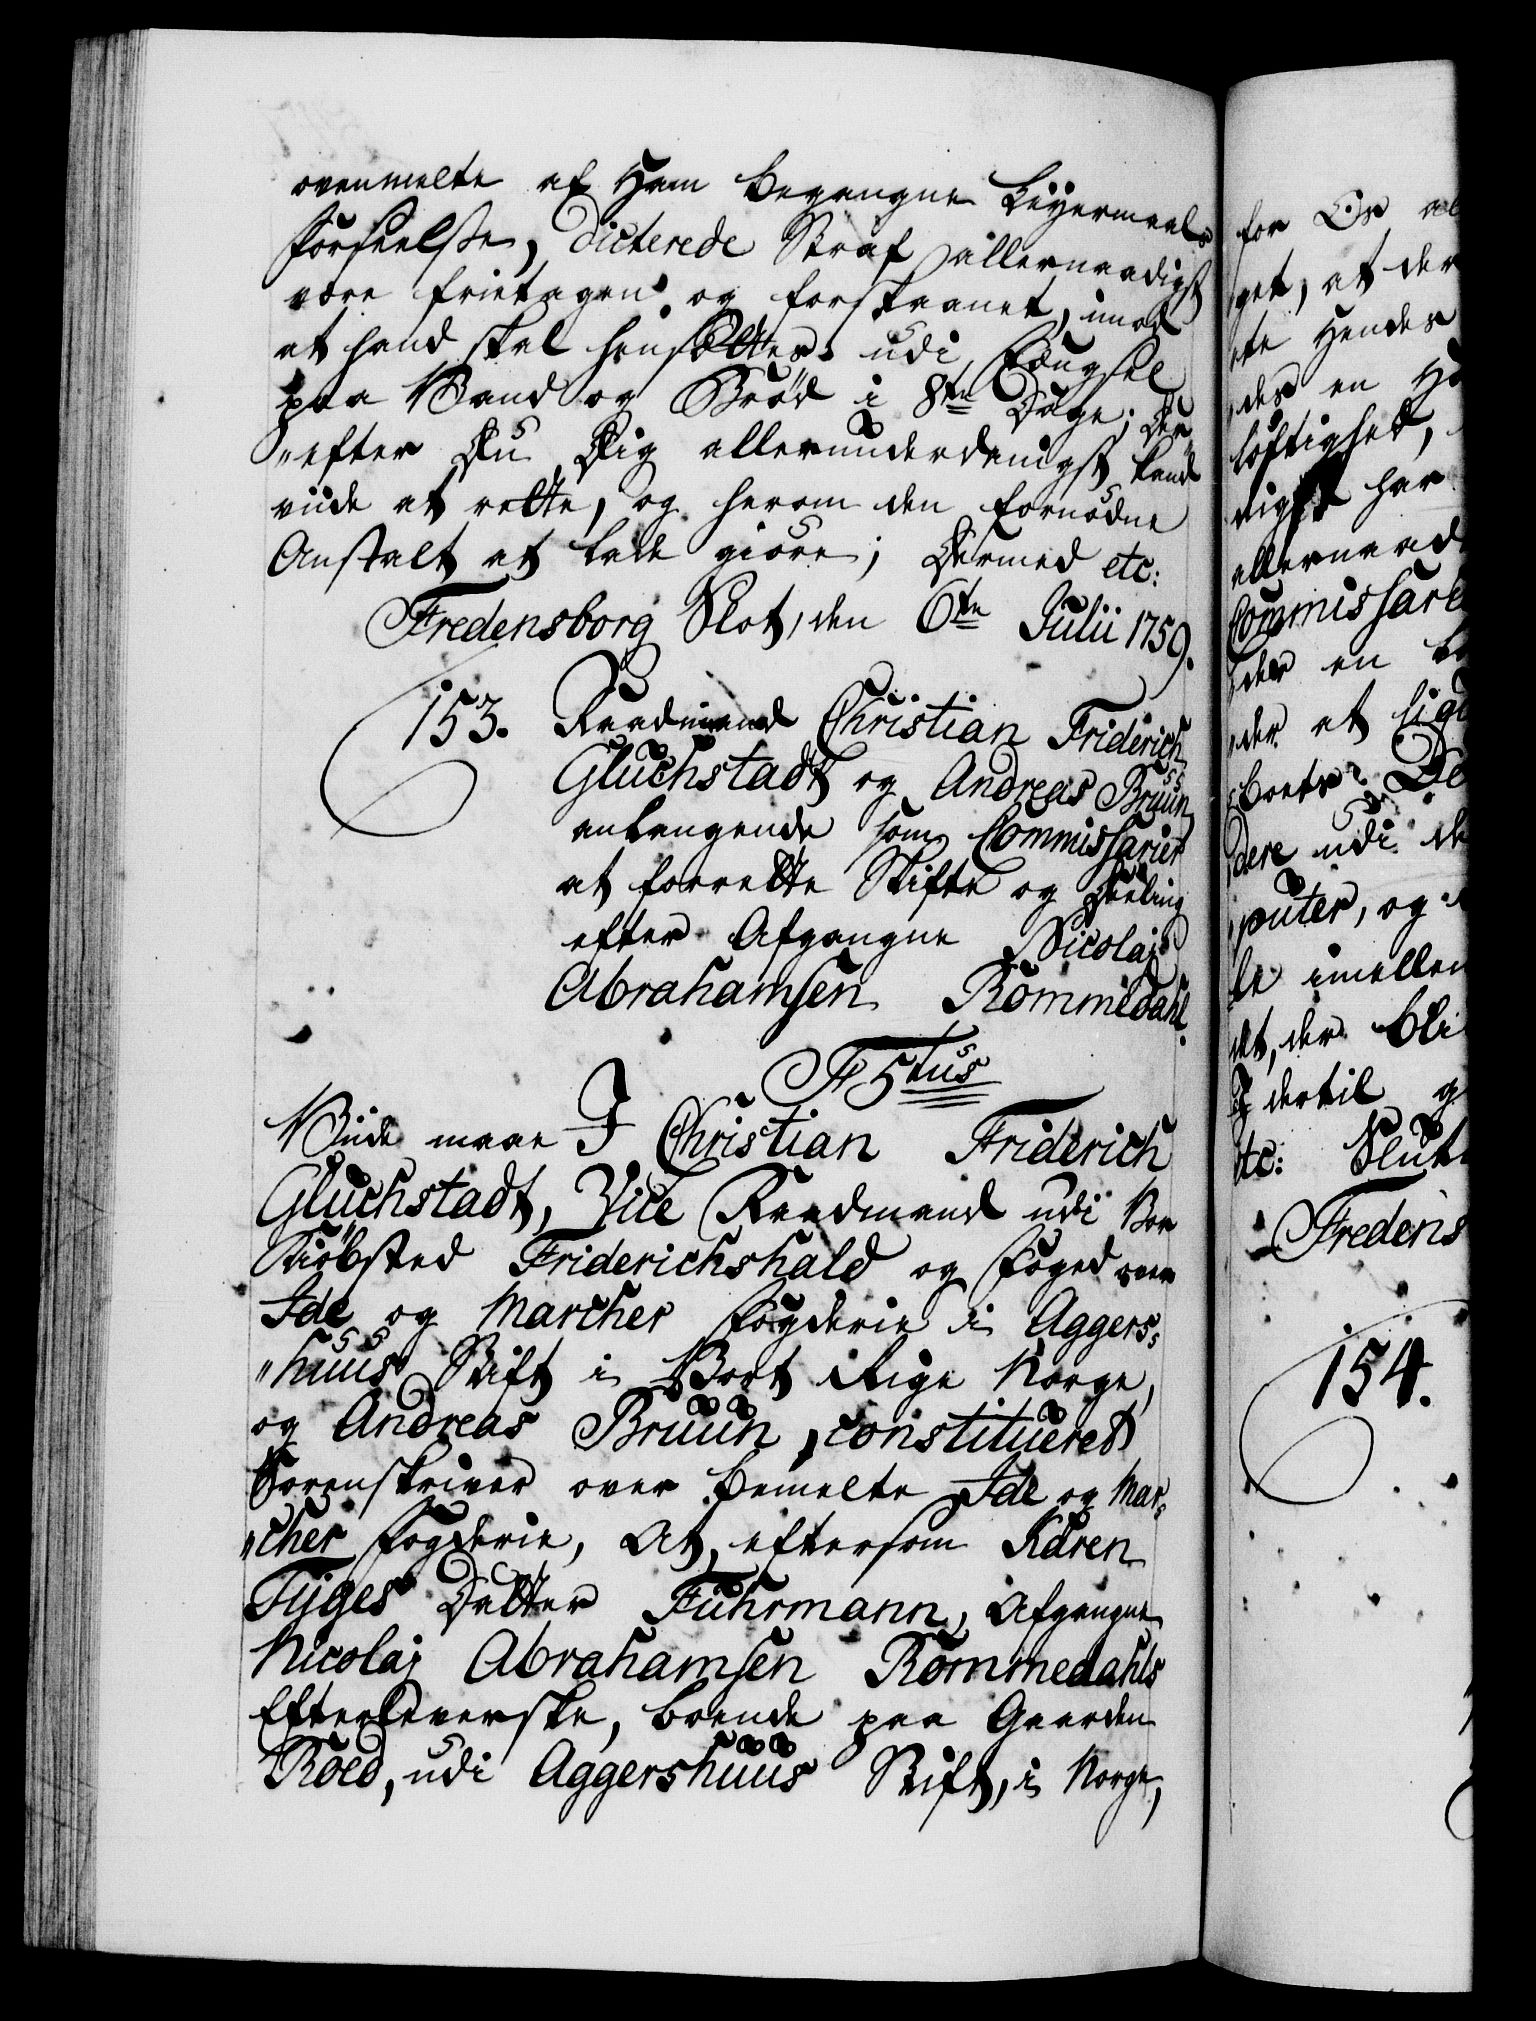 ovenmelte af Ham begangne Leyermaals
Forseelse, dicterede Straf allernaadigst
være frietagen og forskaanet, imod
at hand skal hensættes udi Fængsel
paa Vand og Brød i 8te Dage; Der
"efter Du Dig allerunderdanigst kand
viide at rette, og herom den fornødne
Anstalt at lade giøre; Dermed etc:
Fredensborg Slot, den 6te Julii 1759.
153. Raadmand Christian Friderich
Gluchstadt og Andreas Bruun
anlangende som Commissarier
at forrette Skifte og Deeling
efter Afgangne Nicolaj
Abrahamsen Rommedahl.
F 5tus
Viide maae I Christian Friderich
Gluchstadt, Vice Raadmand udi Vor
Kiøbsted Friderichshald og Foged over
Ide og Marcher Fogderie i Aggers=
"huus Stift i Vort Rige Norge,
og Andreas Bruun, constitueret
Sorenskriver over bemelte Ide og Mar=
"cher Fogderie, At, eftersom Karen
Tyges Datter Fuhrmann, Afgangne
Nicolaj Abrahamsen Rommedahls
Efterleverske, boende paa Gaarden
Röed, udi Aggershuus Stift, i Norge,
for Os al
get, at der
te Hendes
des en
løftighed,
digst har
allernaad
Commissari
der en
der at
Boets
dere udi de
puter, og
le imellem
det, der bli
I dertil g
etc: Slut
Fredens
154.